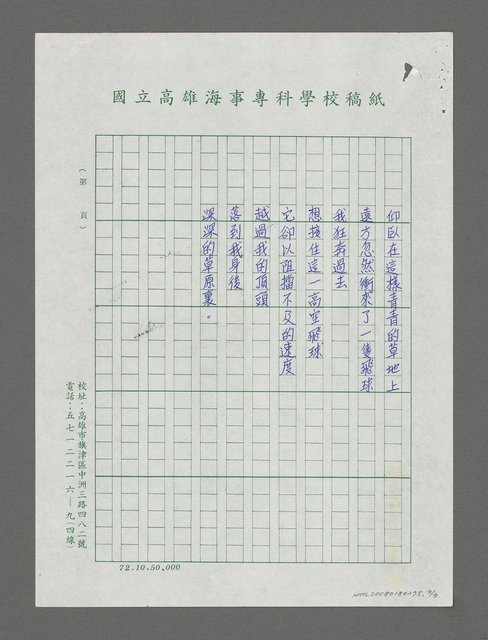 國立高雄海事專科學校稿紙
(第　頁)
仰臥在這樣青青的草地上
遠方忽然衝來了一隻飛球
我狂奔過去
想接住這一高空飛球
它卻以阻擋不及的速度
越過我的頂頭
落到我身後
深深的草原裏。
校址：高雄市旗津區中洲三路四八二號
電話：五七一二二一六─九(四線)
72.10.50,000
NMTL20080180275, 3/3